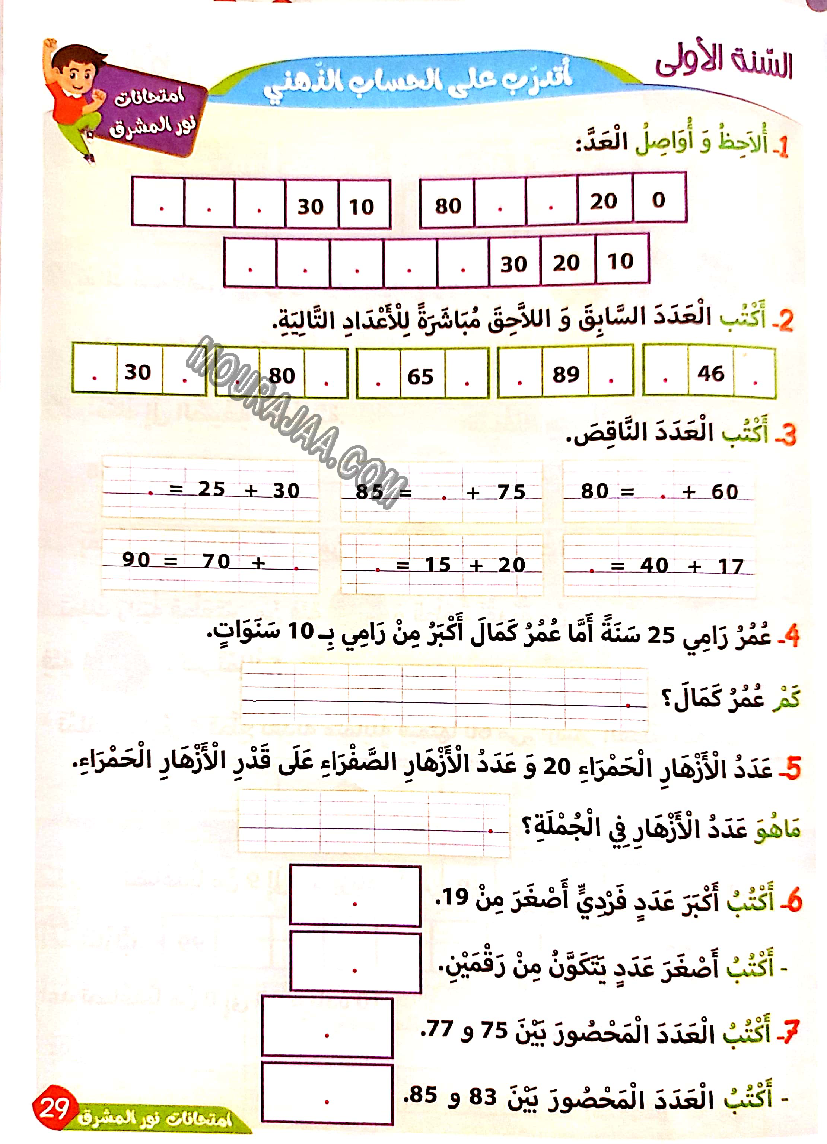 السّنة الأولى
أتدرّب على الحساب الذّهني
امتحانات
نور المشرق
1- أُلاَحِظُ وَ أُوَاصِلُ الْعَدَّ:
0 20 . . 80
10 30 . . .
10 20 30 . . . . .
2- أَكْتُب الْعَدَدَ السَّابِقَ وَ اللاَّحِقَ مُبَاشَرَةً لِلْأَعْدَادِ التَّالِيَةِ.
. 46 .
. 89 .
. 65 .
. 80 .
. 30 .
3- أَكْتُب الْعَدَدَ النَّاقِصَ.
80 = . + 60
85 = . + 75
. = 25 + 30
. = 40 + 17
. = 15 + 20
90 = 70 + .
4- عُمُرُ رَامِي 25 سَنَةً أَمَّا عُمُرُ كَمَالَ أَكْبَرُ مِنْ رَامِي بِـ 10 سَنَوَاتٍ.
كَمْ عُمُرُ كَمَالَ؟ .
5- عَدَدُ الْأَزْهَارِ الْحَمْرَاءِ 20 وَ عَدَدُ الْأَزْهَارِ الصَّفْرَاءِ عَلَى قَدْرِ الْأَزْهَارِ الْحَمْرَاءِ.
مَاهُوَ عَدَدُ الْأَزْهَارِ فِي الْجُمْلَةِ؟ .
6- أَكْتُبُ أَكْبَرَ عَدَدٍ فَرْدِيٍّ أَصْغَرَ مِنْ 19. .
- أَكْتُبُ أَصْغَرَ عَدَدٍ يَتَكَوَّنُ مِنْ رَقْمَيْنِ. .
7- أَكْتُبُ الْعَدَدَ الْمَحْصُورَ بَيْنَ 75 و 77. .
- أَكْتُبُ الْعَدَدَ الْمَحْصُورَ بَيْنَ 83 و 85. .
امتحانات نور المشرق
29
MOURAJAA.COM